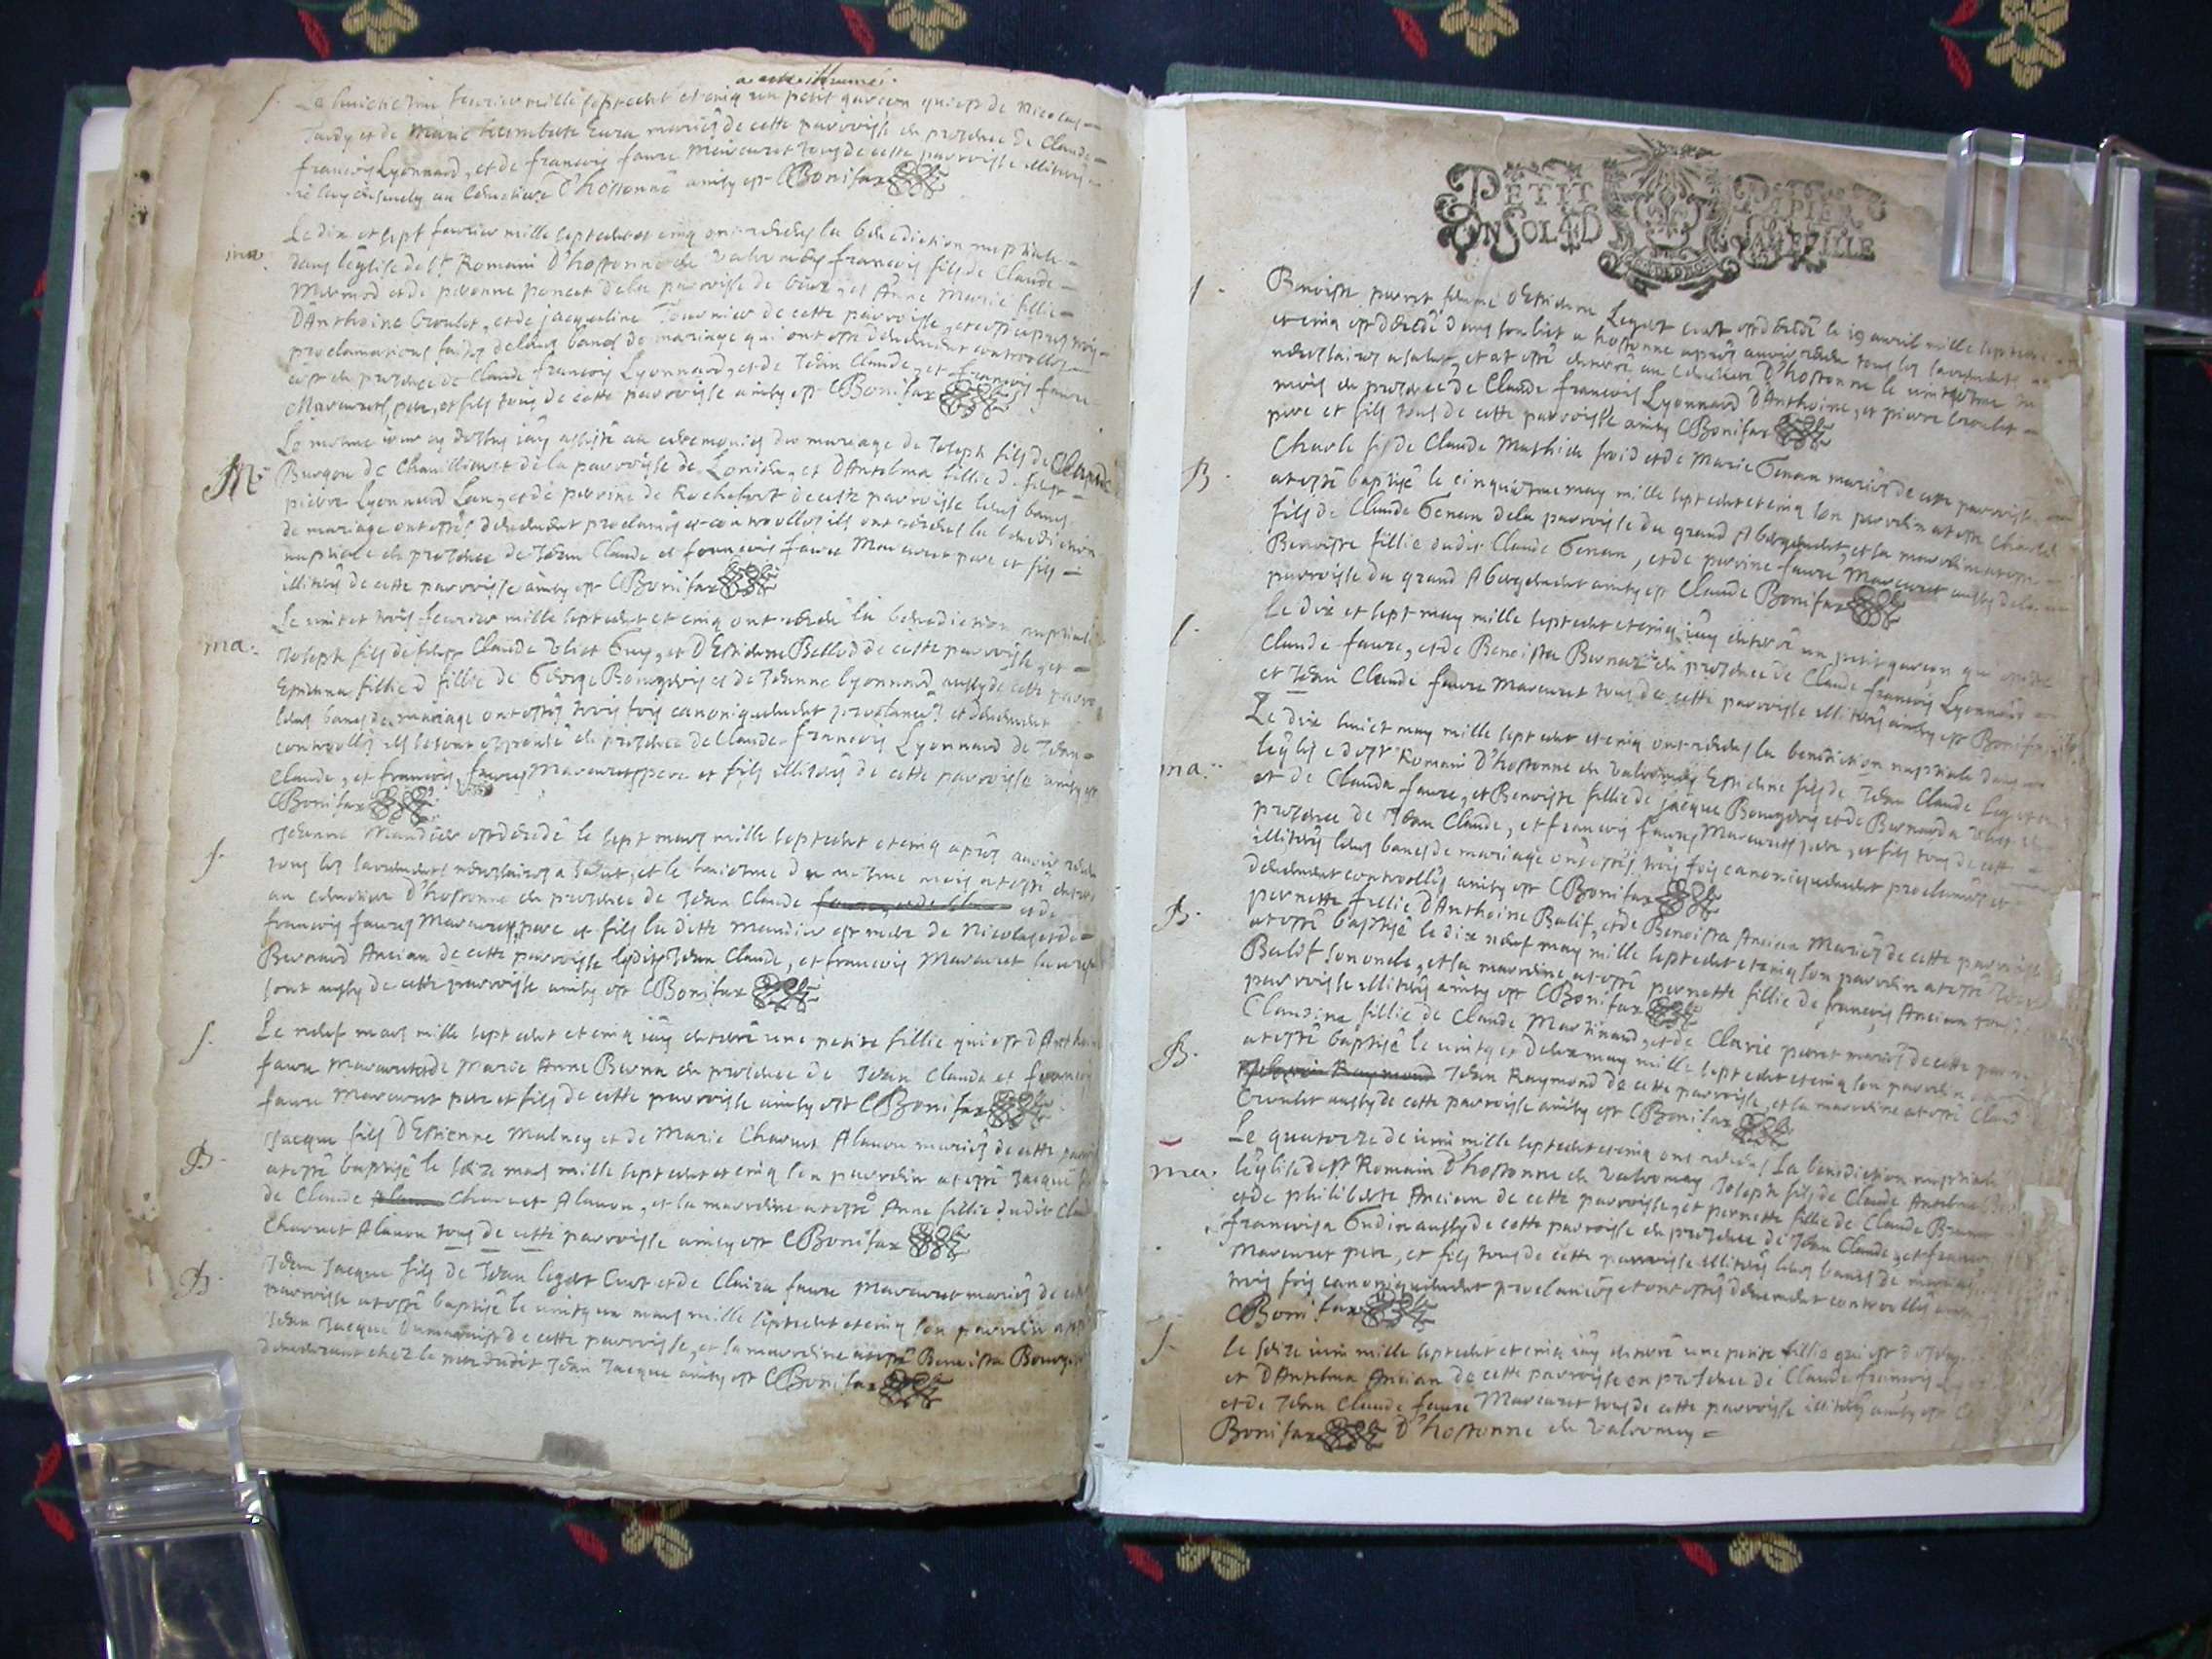 a este inhumé.
S. Le huictieme feurier mille septcent et cinq un petit garcon qui est de Nicolas
Tardy et de Marie humberte mariés de cette parroisse en presence de Claude
francois Lyonnard, et de francois faure Mareuret tous de cette parroisse illiterés
au Cemetiere d'hostonne ainsy est CBonifax
ma. Le dix et sept feurier mille septcent et cinq ont receus la benediction nuptiale
dans leglise de st Romain d'hostonne en valromey francois fils de Claude
et de peronne poncet de la parroisse de et Anne Marie fillie
d'Anthoine Croulet, et de jacqueline Tournier de cette parroisse, et cest apres trois
proclamations faites de leurs bancs de mariage qui ont esté deuement controollés
cest en presence de Claude francois Lyonnard, et de Jean Claude, et francois faure
Mareuret pere, et fils tous de cette parroisse ainsy est CBonifax
M. Le mesme iour cy dessus iay assisté au ceremonies du mariage de Joseph fils de Claude
Burgon de de la parroisse de et d'Antelma fillie de
pierre Lyonnard et de perrine de Rochefort de cette parroisse leurs bancs
de mariage ont estés deuement proclamés et controollés ils ont receus la benediction
nuptiale en presence de Jean Claude et francois faure Mareuret pere et fils
illiterés de cette parroisse ainsy est CBonifax
ma. Le vint et trois feurier mille septcent et cinq ont receu la benediction nuptiale
Joseph fils de Claude et d'Estienne Bellod de cette parroisse, et
Estienna fillie d fillie de George Bourgeois et de Jeanne lyonnard aussy de cette parro
leurs bancs de mariage ont estés trois fois canoniquement proclamés et deuement
controollés ils se sont espousé en presence de Claude francois Lyonnard de Jean
Claude, et francois faures Mareurets pere et fils illiterés de cette parroisse ainsy est
CBonifax
S. Jeanne Mandier est decedé le sept mars mille septcent et cinq aprés auoir receu
tous les sacrements necessaires a salut, et le huictme du mesme mois a esté enterré
au cemetiere d'hostonne en presence de Jean Claude et de
francois faures Mareurets pere et fils la ditte Mandier est mere de Nicolas et de
Bernard Ancian de cette parroisse lesdits Jean Claude, et francois Mareuret
sont aussy de cette parroisse ainsy est CBonifax
S. Le neuf mars mille septcent et cinq iay enterré une petite fillie qui est d'Anthoine
faure Mareuret et de Marie Anne en presence de Jean Claude et francois
faure Mareuret pere et fils de cette parroisse ainsy est CBonifax
B. Jacque fils d'Estienne Mulney et de Marie Charuet Alauon mariés de cette parroi
a esté baptisé le seize mars mille septcent et cinq son parrein a esté Jacque
de Claude Charuet Alauon, et sa marreine a esté Anne fillie dudit Claude
Charuet Alauon tous de cette parroisse ainsy est CBonifax
B. Jean Jacque fils de Jean leger Curt et de Claira faure Mareuret mariés de cette
parroisse a esté baptisé le vintg un mars mille septcent et cinq son parrein a esté
Jean Jacque de cette parroisse, et sa marreine a esté Benoista Bourgeois
demeurant chez le pere dudit Jean Jacque ainsy est CBonifax
PETIT PAPIER
UN SOL 4 D LA FEUILLE
S. Benoiste perret femme d'Estienne Leger curt est decedé le 19 auril mille septcent
et cinq est decedé dans son lict a hostonne aprés auoir receu tous les sacrements
necessaires a salut, et at esté enterré au Cemetiere d'hostonne le vintiesme du
mois en presence de Claude francois Lyonnard d'Anthoine, et pierre Croulet
pere et fils tous de cette parroisse ainsy CBonifax
B. Charle fils de Claude Mathieu froid et de Marie Genan mariés de cette parroisse
at esté baptisé le cinquiesme may mille septcent et cinq son parrein at esté Charle
fils de Claude Genan de la parroisse du grand Abergement, et sa marreine at esté
Benoiste fillie dudit Claude Genan, et de perrine faure Mareuret aussy de la
parroisse du grand Abergement ainsy est Claude Bonifax
S. Le dix et sept may mille septcent et cinq iay enterré un petit garcon qui est de
Claude faure, et de Benoista Bernaz en presence de Claude francois Lyonnard
et Jean Claude faure Mareuret tous de cette parroisse illiterés ainsy est Bonifax
ma. Le dix huict may mille septcent et cinq ont receus la benediction nuptiale dans
leglise de st Romain d'hostonne en valromey Estienne fils de Jean Claude leger
et de Clauda faure, et Benoiste fillie de jacque Bourgeois et de Bernarda
presence de Jean Claude, et francois faures Mareurets pere, et fils tous de cette
illiterés leurs bancs de mariage ont estés trois fois canoniquement proclamés et
deuement controollés ainsy est CBonifax
B. pernette fillie d'Anthoine Balif, et de Benoista Ancian Mariés de cette parroisse
at esté baptisé le dix neuf may mille septcent et cinq son parrein at esté
Balif son oncle, et sa marreine at esté pernette fillie de francois Ancian tous de
parroisse illiterés ainsy est CBonifax
B. Claudine fillie de Claude Martinand, et de Clerie perret mariés de cette parr
at esté baptisé le vintg et deux may mille septcent et cinq son parrein
Jean Raymond de cette parroisse, et sa marreine at esté Claud
Croulet aussy de cette parroisse ainsy est CBonifax
ma. Le quatorze de iuin mille septcent et cinq ont receus la benediction nuptiale
leglise de st Romain d'hostonne en valromey Joseph fils de Claude Antelme
et de philiberte Ancian de cette parroisse, et pernette fillie de Claude
francoisa Gudin aussy de cette parroisse en presence de Jean Claude, et francois
Mareuret pere, et fils tous de cette parroisse illiterés leurs bancs de mariage
trois fois canoniquement proclamés et ont estés deuement controollés ainsy
CBonifax
S. le seize iuin mille septcent et cinq iay enterré une petite fillie qui est
et d'Antelma Ancian de cette parroisse en presence de Claude francois
et de Jean Claude faure Mareuret tous de cette parroisse illiterés ainsy est C
Bonifax d'hostonne en valromey